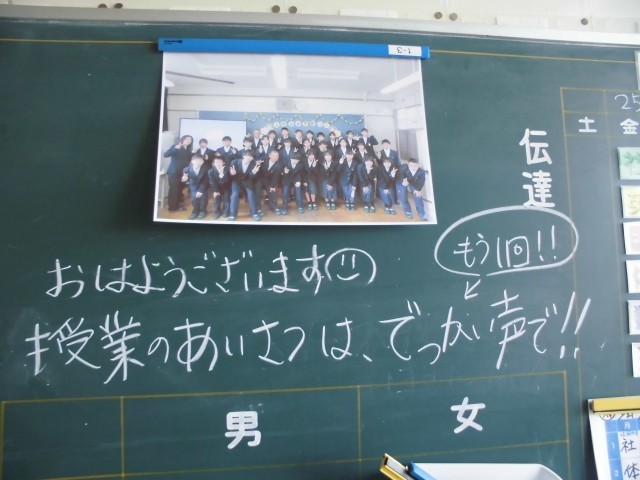 1-3
25
土 金
伝達
もう1回!!
おはようございます
授業のあいさつは、でっかい声で!!
男 女
月
1 社
2 体